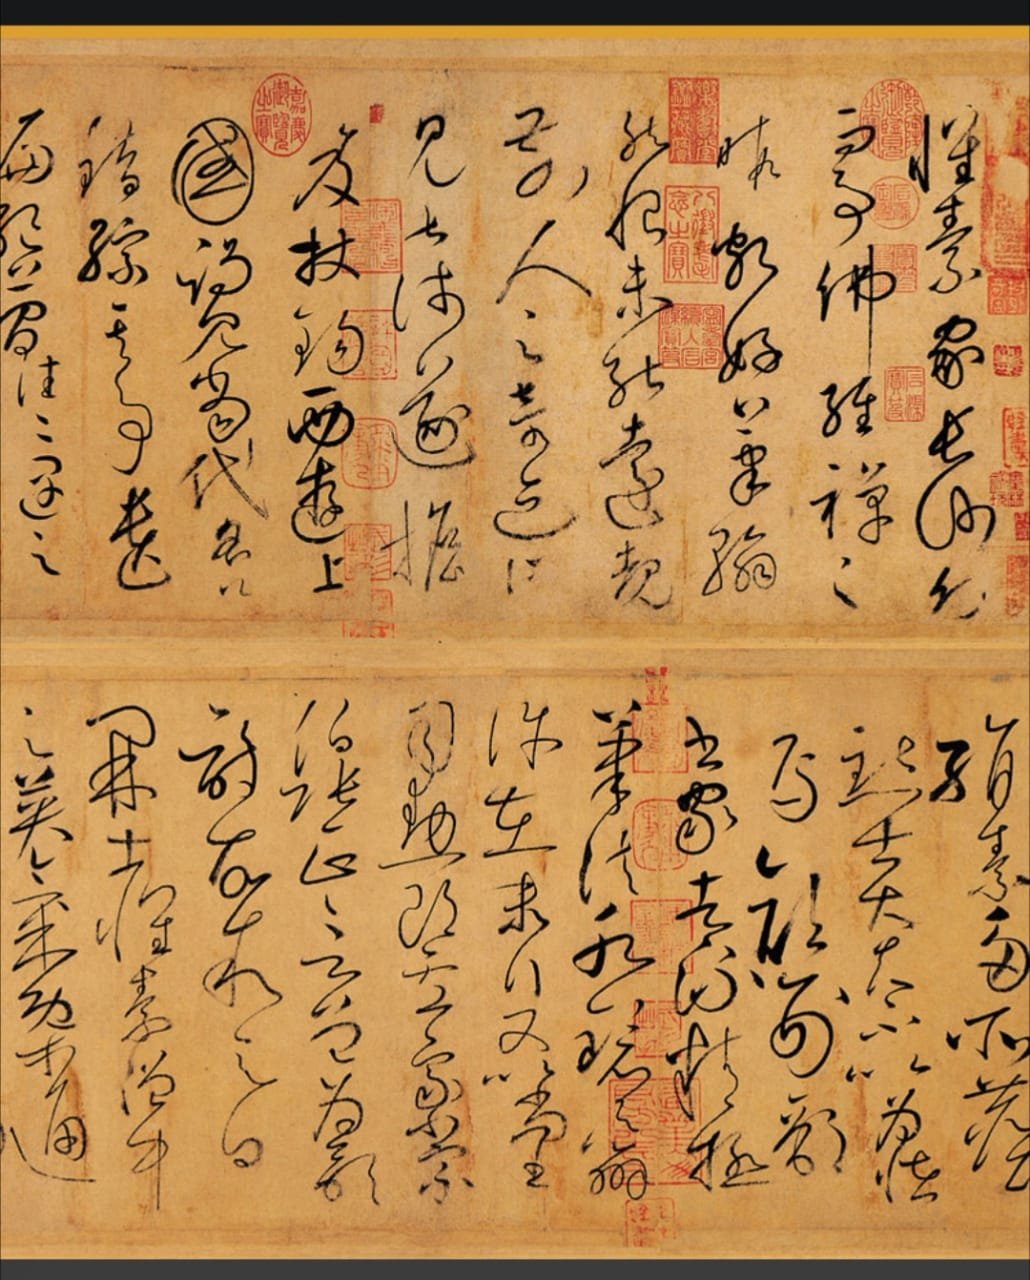 懷素家長沙幼
而事佛經禪之
暇頗好筆翰
然恨未能遠覩
前人之奇迹所
見甚淺遂擔
笈杖錫西遊上
國謁見當代名公
錯綜其事遺
編絕簡往往遇之
絹素多所塵
點士大夫不以為怪
焉顏刑部
書家者流精極
筆法水鏡之辨
許在末行又以尚書
司勳郎盧象小宗
伯張正言曾為歌
詩故敘之曰
開士懷素僧中
之英氣概通